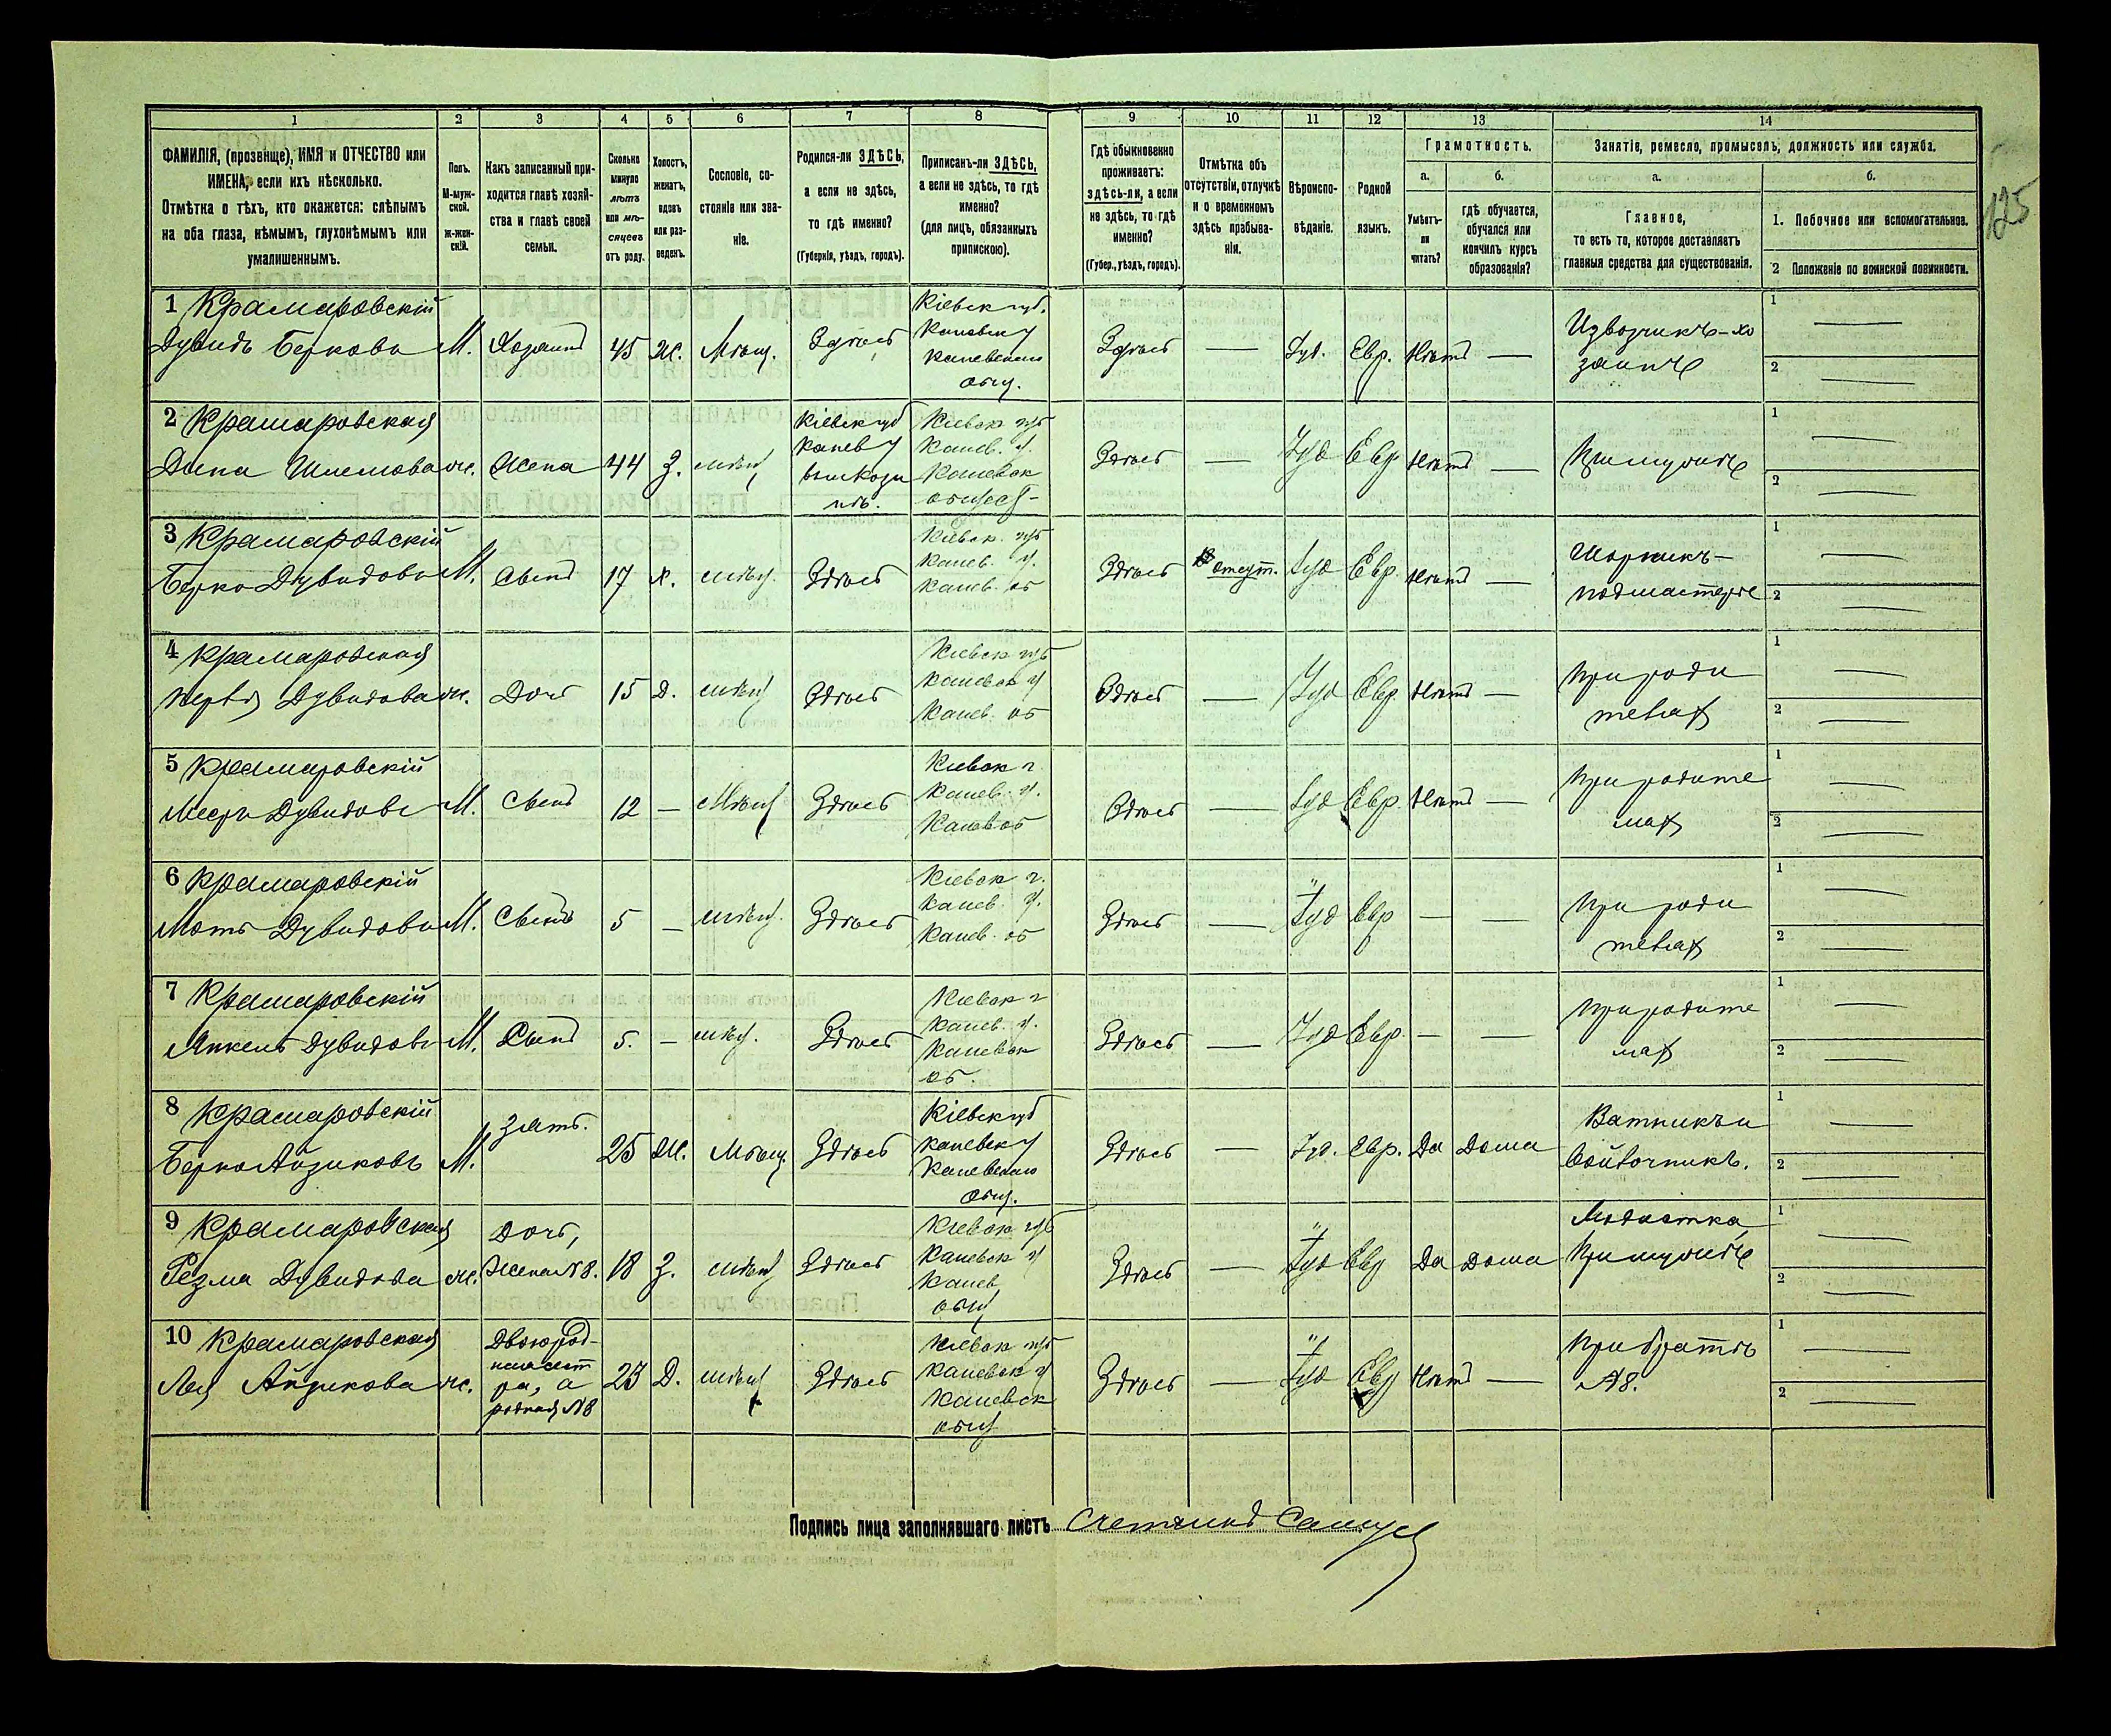 125
1 2 3 4 5 6 7 8 9 10 11 12 13 14
ФАМИЛІЯ, (прозвище), ИМЯ и ОТЧЕСТВО или
ИМЕНА, если ихъ нѣсколько.
Отмѣтка о тѣхъ, кто окажется: слѣпымъ
на оба глаза, нѣмымъ, глухонѣмымъ или
умалишеннымъ.
Полъ.
М-муж-
ской.
ж-жен-
скій.
Какъ записанный при-
ходится главѣ хозяй-
ства и главѣ своей
семьи.
Сколько
минуло
лѣтъ
или мѣ-
сяцевъ
отъ роду.
Холостъ,
женатъ,
вдовъ
или раз-
веденъ.
Сословіе, со-
стояніе или зва-
ніе.
Родился-ли ЗДѢСЬ,
а если не здѣсь,
то гдѣ именно?
(Губернія, уѣздъ, городъ).
Приписанъ-ли ЗДѢСЬ,
а если не здѣсь, то гдѣ
именно?
(для лицъ, обязанныхъ
припискою).
Гдѣ обыкновенно
проживаетъ:
здѣсь-ли, а если
не здѣсь, то гдѣ
именно?
(Губер., уѣздъ, городъ).
Отмѣтка объ
отсутствіи, отлучкѣ
и о временномъ
здѣсь пребыва-
ніи.
Вѣроиспо-
вѣданіе.
Родной
языкъ.
Грамотность.
а.
Умѣетъ-
ли
читать?
б.
гдѣ обучается,
обучался или
кончилъ курсъ
образованія?
Занятіе, ремесло, промыселъ, должность или служба.
а.
Главное,
то есть то, которое доставляетъ
главныя средства для существованія.
б.
1. Побочное или вспомогательное.
2 Положеніе по воинской повинности.
1 Крамаровскій
Дувидъ Берковъ М. Хозяинъ 45 Ж. Мѣщ. Здѣсь
Кіевск губ.
Каневск у
Каневскаго
общ.
Здѣсь — Іуд. Евр. Нѣтъ —
Извозчикъ-хо
заинъ
1 —
2 —
2 Крамаровская
Дина Шлемова ж. Жена 44 З. мѣщ
Кіевск губ
Канев у
Кіевск губ
Канев. у.
Каневск
общест-
Здѣсь — Іуд Евр Нѣтъ —
При мужѣ
1 —
2 —
3 Крамаровскій
Берко Дувидовъ М. Сынъ 17 х. мѣщ. Здѣсь
Кіевск. губ
Канев. у.
Канев. об
Здѣсь отсут. Іуд Евр. Нѣтъ —
Шорникъ-
подмастерье
1 —
2 —
4 Крамаровская
Дувидова ж. Дочь 15 Д. мѣщ Здѣсь
Кіевск губ
Каневск у
Канев. об
Здѣсь — Іуд Евр Нѣтъ —
При роди
телях
1 —
2 —
5 Крамаровскій
Дувидовъ М. Сынъ 12 — Мѣщ Здѣсь
Кіевск г.
Канев. у.
Канев об
Здѣсь — Іуд Евр. Нѣтъ —
При родите
лях
1 —
2 —
6 Крамаровскій
Мотъ Дувидовъ М. Сынъ 5 — мѣщ. Здѣсь
Кіевск г.
Канев. у.
Канев. об
Здѣсь — Іуд Евр — —
При роди
телях
1 —
2 —
7 Крамаровскій
Янкель Дувидовъ М. Сынъ 5. — мѣщ. Здѣсь
Кіевск г
Канев. у.
Каневск
об.
Здѣсь — Іуд Евр. — —
При родите
лях
1 —
2 —
8 Крамаровскій
Берко Айзиковъ М. Зять. 25 Ж. Мѣщ. Здѣсь
Кіевск губ
Каневск у
Каневскаго
общ.
Здѣсь — Іуд. Евр. Да Дома
Ватникъ и
войлочникъ.
1 —
2 —
9 Крамаровская
Рейзма Дувидова ж.
Дочь,
Жена №8. 18 З. мѣщ Здѣсь
Кіевск губ
Каневск у
Канев
общ
Здѣсь — Іуд Евр Да Дома
Модистка,
При мужѣ
1 —
2 —
10 Крамаровская
Лея Айзикова ж.
Двоюрод-
ная сест
ра, а
родная №8
23 Д. мѣщ Здѣсь
Кіевск губ
Каневск у
Каневск
общ
Здѣсь — Іуд Евр Нѣтъ —
При братѣ
№8.
1 —
2 —
Подпись лица заполнявшаго листъ Счетчикъ